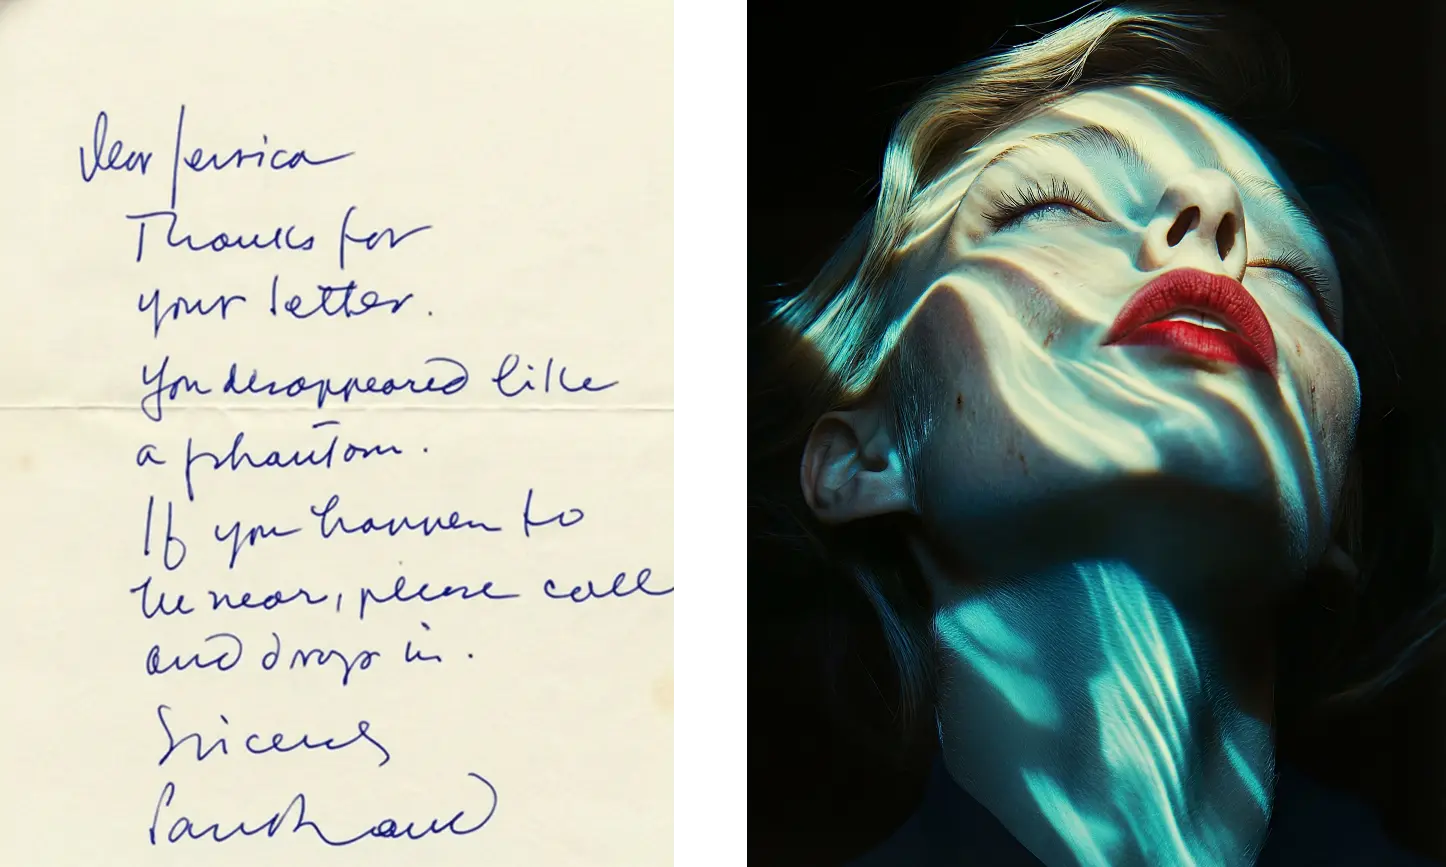 Dear Jessica
Thanks for
your letter.
You desappeared like
a phantom.
If you happen to
be near, please call
and drop in.
Sincerely